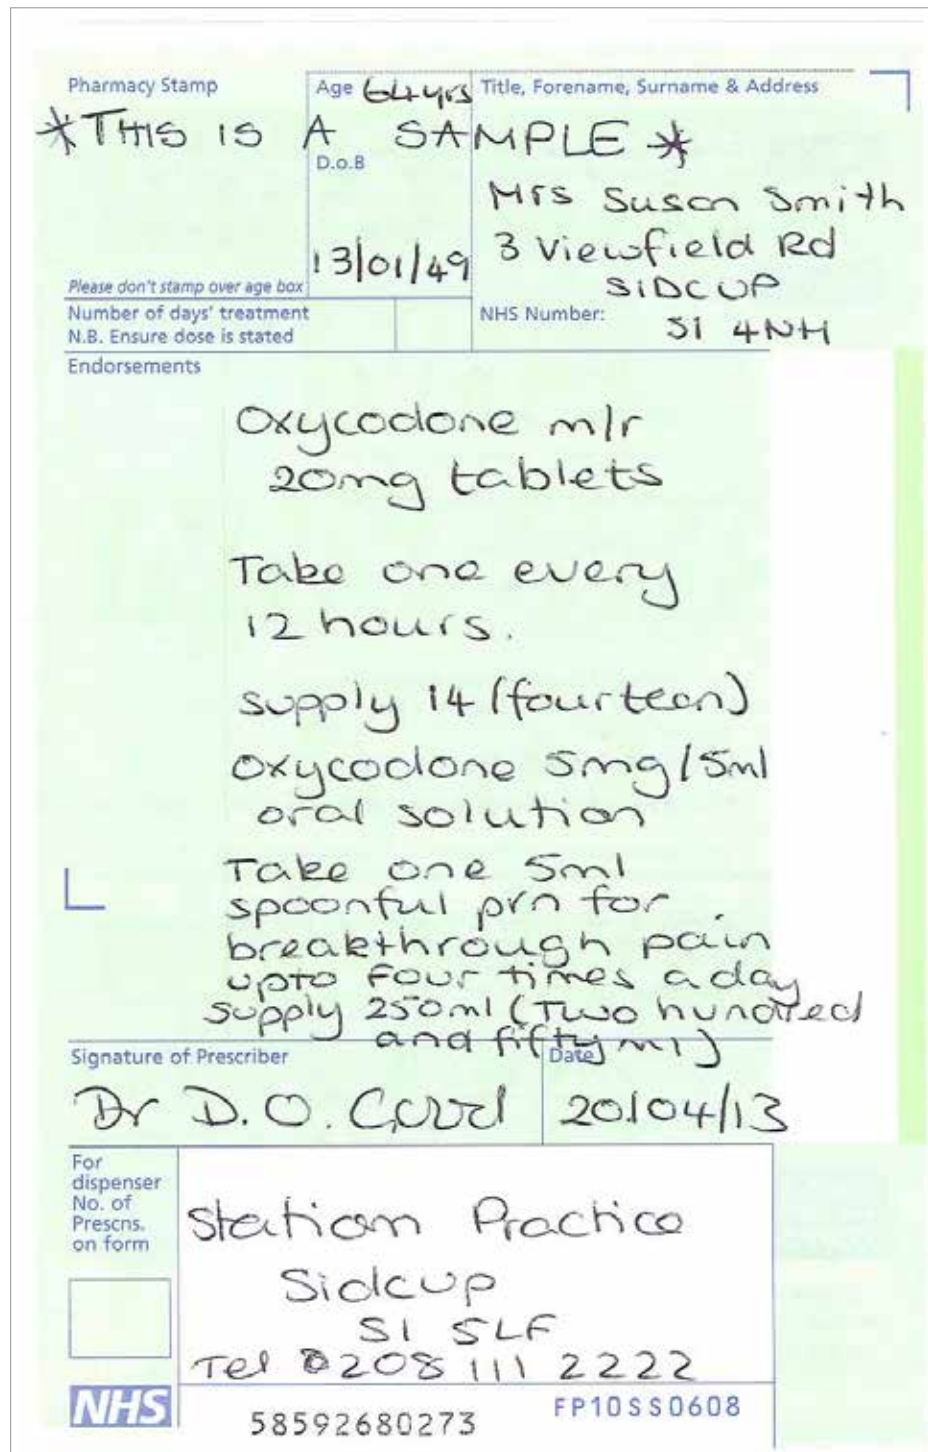 Pharmacy Stamp
Age 64yrs
Title, Forename, Surname & Address
*THIS IS A SAMPLE*
D.o.B
13/01/49
Mrs Susan Smith
3 Viewfield Rd
SIDCUP
Please don't stamp over age box
Number of days' treatment
N.B. Ensure dose is stated
NHS Number:
S1 4NH
Endorsements
Oxycodone m/r
20mg tablets
Take one every
12 hours.
supply 14 (fourteen)
Oxycodone 5mg/5ml
oral solution
Take one 5ml
spoonful prn for
breakthrough pain
upto four times a day
supply 250ml (Two hundred
and fifty ml)
Signature of Prescriber
Date
Dr D.O. Good
20/04/13
For
dispenser
No. of
Prescns.
on form
Station Practice
Sidcup
S1 5LF
Tel 0208 111 2222
NHS
58592680273
FP10SS0608